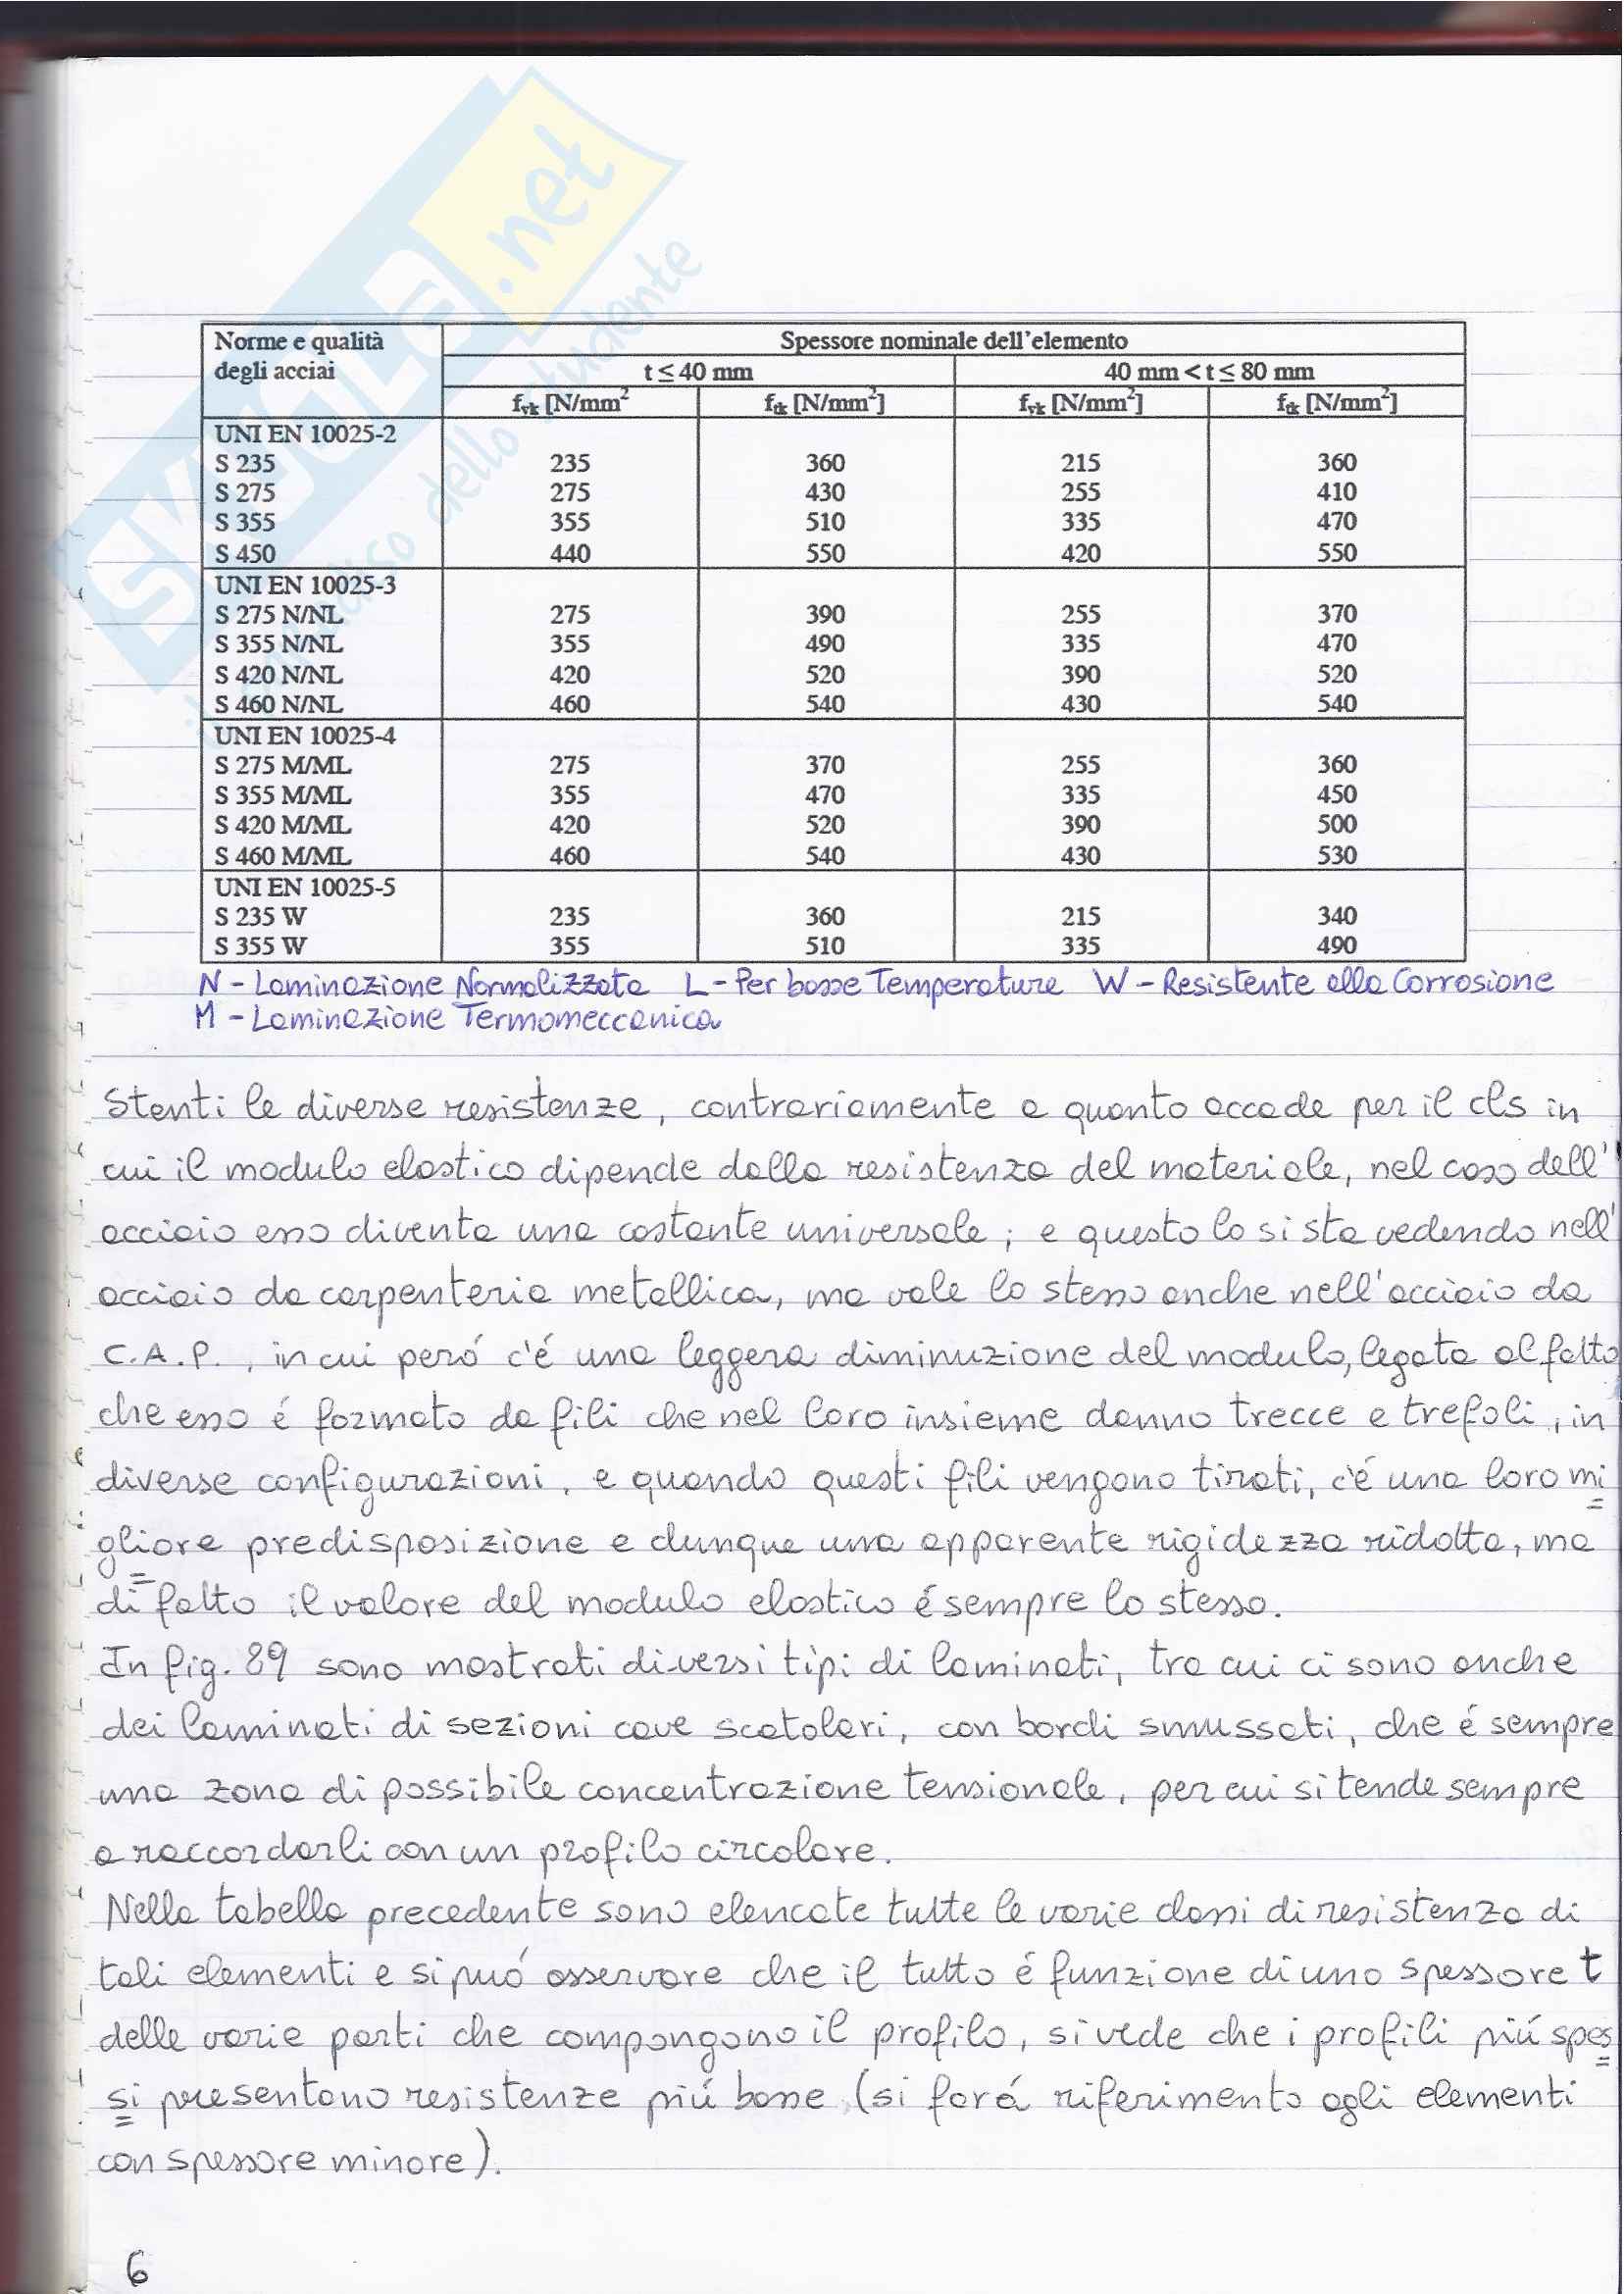 SKUOLA.net
il paradiso dello studente
Norme e qualità degli acciai | Spessore nominale dell'elemento
t ≤ 40 mm | 40 mm < t ≤ 80 mm
fyk [N/mm2 | ftk [N/mm2] | fyk [N/mm2] | ftk [N/mm2]
UNI EN 10025-2
S 235 235 360 215 360
S 275 275 430 255 410
S 355 355 510 335 470
S 450 440 550 420 550
UNI EN 10025-3
S 275 N/NL 275 390 255 370
S 355 N/NL 355 490 335 470
S 420 N/NL 420 520 390 520
S 460 N/NL 460 540 430 540
UNI EN 10025-4
S 275 M/ML 275 370 255 360
S 355 M/ML 355 470 335 450
S 420 M/ML 420 520 390 500
S 460 M/ML 460 540 430 530
UNI EN 10025-5
S 235 W 235 360 215 340
S 355 W 355 510 335 490
N - Laminazione Normalizzata L - Per basse Temperature W - Resistente alla Corrosione
M - Laminazione Termomeccanica
Stanti le diverse resistenze, contrariamente a quanto accade per il cls in
cui il modulo elastico dipende dalla resistenza del materiale, nel caso dell'
acciaio esso diventa una costante universale; e questo lo si sta vedendo nell'
acciaio da carpenteria metallica, ma vale lo stesso anche nell'acciaio da
C.A.P., in cui peró c'é una leggera diminuzione del modulo, legata al fatto
che esso é formato da fili che nel loro insieme danno trecce e trefoli, in
diverse configurazioni, e quando questi fili vengono tirati, c'é una loro mi
gliore predisposizione e dunque una apparente rigidezza ridotta, ma
di fatto il valore del modulo elastico é sempre lo stesso.
In fig. 89 sono mostrati diversi tipi di laminati, tra cui ci sono anche
dei laminati di sezioni cave scatolari, con bordi smussati, che é sempre
una zona di possibile concentrazione tensionale, per cui si tende sempre
a raccordarli con un profilo circolare.
Nella tabella precedente sono elencate tutte le varie classi di resistenza di
tali elementi e si puó osservare che il tutto é funzione di uno spessore t
delle varie parti che compongono il profilo, si vede che i profili piú spes
si presentano resistenze piú basse (si fará riferimento agli elementi
con spessore minore).
6